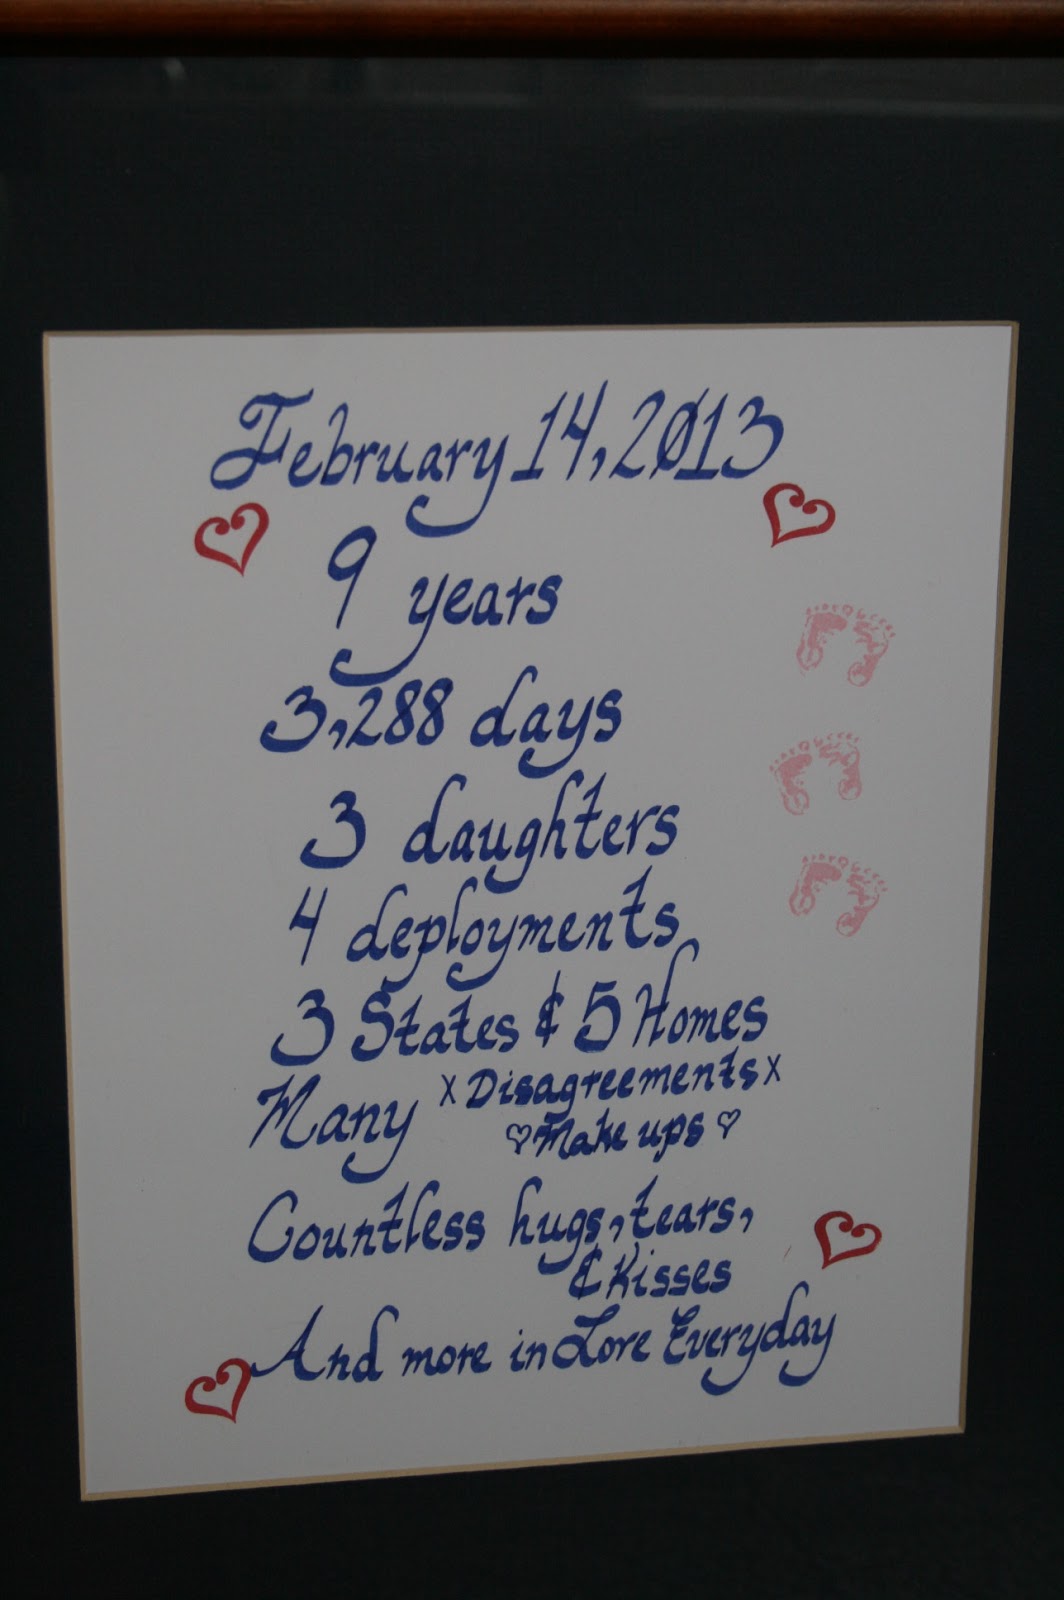 February 14, 2013
9 years
3,288 days
3 daughters
4 deployments
3 States & 5 Homes
Many x Disagreements x
♡ Make ups ♡
Countless hugs, tears,
& Kisses
And more in Love Everyday